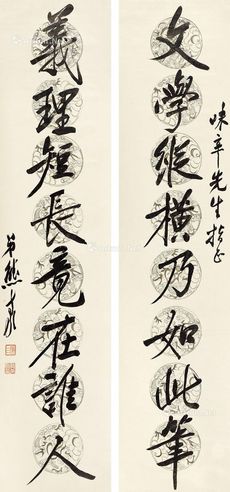 味辛先生指正
文學縱橫乃如此筆
義理短長竟在誰人
弟熊